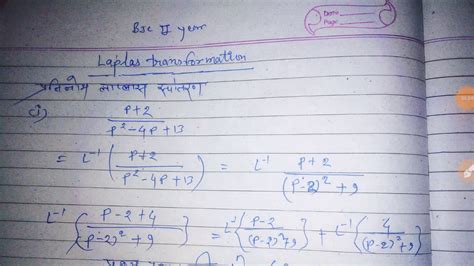 Bsc II year
Date
Page
Laplas transformation
प्रतिलोम लाप्लास रूपांतरण
(i) P+2 / P²-4P+13
= L⁻¹ (P+2 / P²-4P+13) = L⁻¹ P+2 / (P-2)²+9
L⁻¹ {P-2+4 / (P-2)²+9} = L⁻¹{P-2 / (P-2)²+9} + L⁻¹{4 / (P-2)²+9}